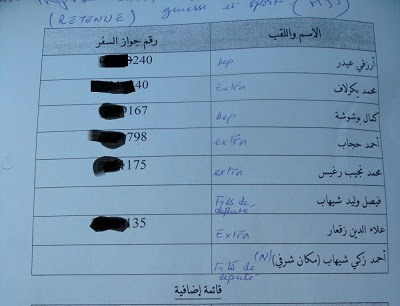 (RETENUE) jeunesse et sport (MJS)
الاسم واللقب رقم جواز السفر
أرزقي عيدر Dep 240
محمد بكرلاف Extra 40
كمال بوشوشة Dep 167
أحمد حجاب extra 798
محمد نجيب رغيس extra 4175
فيصل وليد شيهاب Fils de député
علاء الدين زقعار Extra 135
أحمد زكي شيهاب (مكان شرفي) (N) Fils de député
قائمة إضافية